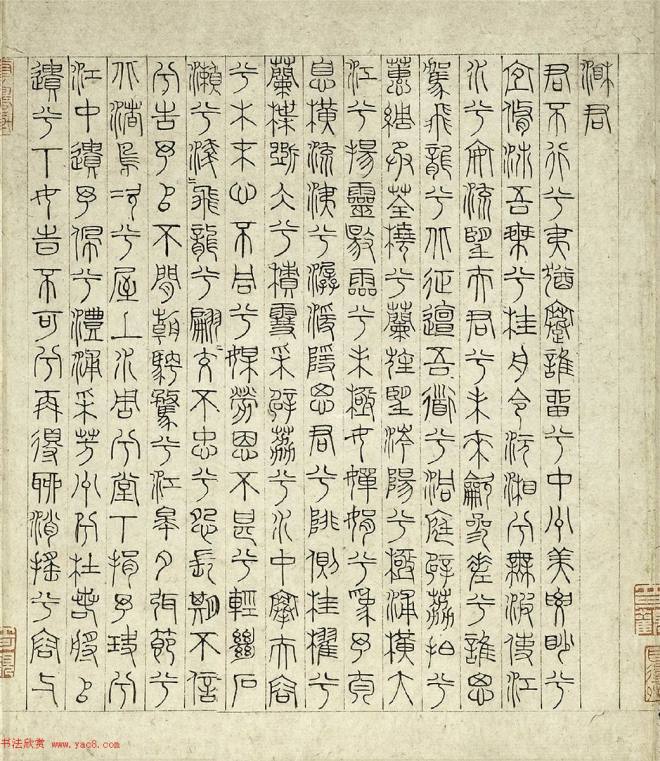 湘君
君不行兮夷猶蹇誰留兮中州美要眇兮
宜脩沛吾乘兮桂舟令沅湘兮無波使江
水兮安流望夫君兮未來歙參差兮誰思
駕飛龍兮北征邅吾道兮洞庭薜荔拍兮
蕙綢承荃橈兮蘭旌望涔陽兮極浦橫大
江兮揚靈敭霝兮未極女嬋娟兮為予
息橫流涕兮潺湲隱思君兮陫側桂櫂兮
蘭枻斲冰兮積雪采薜荔兮水中搴夫容
兮木末心不同兮媒勞恩不甚兮輕絕石
瀨兮淺=飛龍兮翩=交不忠兮怨長期不信
兮告予以不閒朝騁騖兮江皋夕弭節兮
北渚鳥次兮屋上水周兮堂下捐予玦兮
江中遺予佩兮澧浦采芳州兮杜若將以
遺兮下女旹不可兮再得聊逍搖兮容與
书法欣赏 www.yac8.com